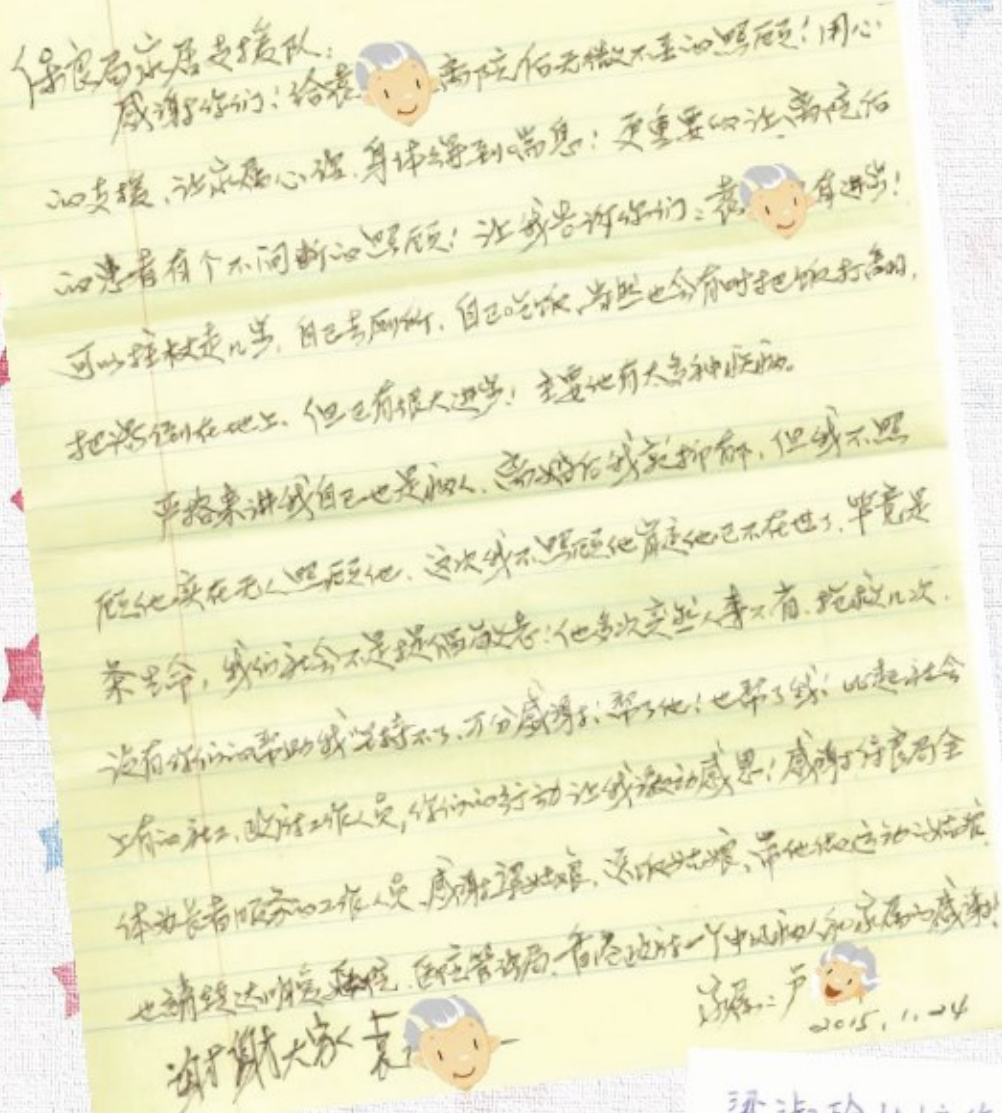 保良局家居支援队:
感谢你们!给袁 离院后无微不至的照顾!用心
的支援,让家属心理、身体得到喘息!更重要的让离院后
的患者有个不间断的照顾!让我告诉你们:袁 有进步!
可以拄杖走几步,自己去厕所,自己吃饭,当然也会有时把饭打翻,
把汤倒在地上,但已有很大进步!主要他有太多种疾病。
严格来讲我自己也是病人,离婚后我就抑郁,但我不照
顾他实在无人照顾他,这次我不照顾他肯定他已不在世了,毕竟是
条生命,我们社会不是提倡敬老!他多次突然人事不省,抢救几次,
没有你们的帮助我坚持不了,万分感谢!帮了他!也帮了我!比起社会
上有的社工、政府工作人员,你们的行动让我激动感恩!感谢保良局全
体为长者服务的工作人员,感谢 姑娘、送饭姑娘、带他做运动的姑娘,
也请转达 医院、医院管理局、香港政府一个中风病人和家属的感谢!
谢谢大家 袁
家属:卢
2015.1.24
梁淑